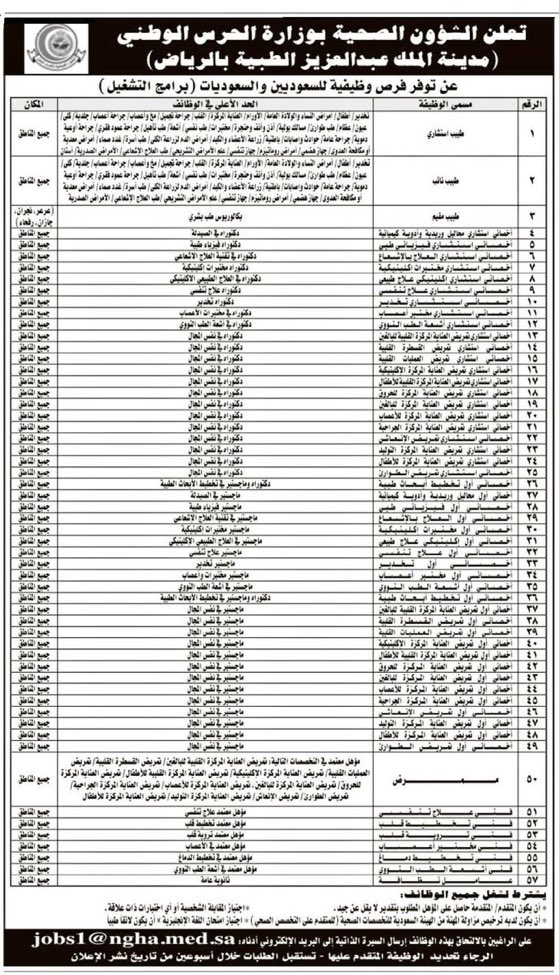 تعلن الشؤون الصحية بوزارة الحرس الوطني
(مدينة الملك عبدالعزيز الطبية بالرياض)
عن توفر فرص وظيفية للسعوديين والسعوديات (برامج التشغيل)
الرقم مسمى الوظيفة الحد الأعلى في الوظائف المكان
١ طبيب استشاري جميع المناطق
٢ طبيب نائب جميع المناطق
٣ طبيب مقيم بكالوريوس طب بشري (عرعر، نجران، جازان، رفحاء)
٤ أخصائي استشاري محاليل وريدية وأدوية كيميائية دكتوراه في الصيدلة جميع المناطق
٥ أخصائي استشاري فيزيائي طبي دكتوراه فيزياء طبية جميع المناطق
٦ أخصائي استشاري العلاج بالإشعاع دكتوراه في تقنية العلاج الاشعاعي جميع المناطق
٧ أخصائي استشاري مختبرات اكلينيكية دكتوراه مختبرات اكلينيكية جميع المناطق
٨ أخصائي استشاري اكلينيكي علاج طبيعي دكتوراه في العلاج الطبيعي الإكلينيكي جميع المناطق
٩ أخصائي استشاري علاج تنفسي دكتوراه علاج تنفسي جميع المناطق
١٠ أخصائي استشاري تخدير دكتوراه تخدير جميع المناطق
١١ أخصائي استشاري مختبر أعصاب دكتوراه في مختبرات الأعصاب جميع المناطق
١٢ أخصائي استشاري أشعة الطب النووي دكتوراه في أشعة الطب النووي جميع المناطق
١٣ أخصائي استشاري تمريض العناية المركزة القلبية للبالغين دكتوراه في نفس المجال جميع المناطق
١٤ أخصائي استشاري تمريض القسطرة القلبية دكتوراه في نفس المجال جميع المناطق
١٥ أخصائي استشاري تمريض العمليات القلبية دكتوراه في نفس المجال جميع المناطق
١٦ أخصائي استشاري تمريض العناية المركزة الاكلينيكية دكتوراه في نفس المجال جميع المناطق
١٧ أخصائي استشاري تمريض العناية المركزة القلبية للأطفال دكتوراه في نفس المجال جميع المناطق
١٨ أخصائي استشاري تمريض العناية المركزة للحروق دكتوراه في نفس المجال جميع المناطق
١٩ أخصائي استشاري تمريض العناية المركزة للبالغين دكتوراه في نفس المجال جميع المناطق
٢٠ أخصائي استشاري تمريض العناية المركزة للأعصاب دكتوراه في نفس المجال جميع المناطق
٢١ أخصائي استشاري تمريض العناية المركزة الجراحية دكتوراه في نفس المجال جميع المناطق
٢٢ أخصائي استشاري تمريض الانعاش دكتوراه في نفس المجال جميع المناطق
٢٣ أخصائي استشاري تمريض العناية المركزة التوليد دكتوراه في نفس المجال جميع المناطق
٢٤ أخصائي استشاري تمريض العناية المركزة للأطفال دكتوراه في نفس المجال جميع المناطق
٢٥ أخصائي استشاري تمريض الطوارئ دكتوراه في نفس المجال جميع المناطق
٢٦ أخصائي أول تخطيط أبحاث طبية دكتوراه وماجستير في تخطيط الأبحاث الطبية جميع المناطق
٢٧ أخصائي أول محاليل وريدية وأدوية كيميائية ماجستير في الصيدلة جميع المناطق
٢٨ أخصائي أول فيزيائي طبي ماجستير فيزياء طبية جميع المناطق
٢٩ أخصائي أول العلاج بالإشعاع ماجستير في تقنية العلاج الاشعاعي جميع المناطق
٣٠ أخصائي أول مختبرات اكلينيكية ماجستير مختبرات اكلينيكية جميع المناطق
٣١ أخصائي أول اكلينيكي علاج طبيعي ماجستير في العلاج الطبيعي الإكلينيكي جميع المناطق
٣٢ أخصائي أول علاج تنفسي ماجستير علاج تنفسي جميع المناطق
٣٣ أخصائي أول تخدير ماجستير تخدير جميع المناطق
٣٤ أخصائي أول مختبر أعصاب ماجستير مختبرات وأعصاب جميع المناطق
٣٥ أخصائي أول أشعة الطب النووي ماجستير في أشعة الطب النووي جميع المناطق
٣٦ أخصائي أول تخطيط أبحاث طبية دكتوراه وماجستير في تخطيط الأبحاث الطبية جميع المناطق
٣٧ أخصائي أول تمريض العناية المركزة القلبية للبالغين ماجستير في نفس المجال جميع المناطق
٣٨ أخصائي أول تمريض القسطرة القلبية ماجستير في نفس المجال جميع المناطق
٣٩ أخصائي أول تمريض العمليات القلبية ماجستير في نفس المجال جميع المناطق
٤٠ أخصائي أول تمريض العناية المركزة الاكلينيكية ماجستير في نفس المجال جميع المناطق
٤١ أخصائي أول تمريض العناية المركزة القلبية للأطفال ماجستير في نفس المجال جميع المناطق
٤٢ أخصائي أول تمريض العناية المركزة للحروق ماجستير في نفس المجال جميع المناطق
٤٣ أخصائي أول تمريض العناية المركزة للبالغين ماجستير في نفس المجال جميع المناطق
٤٤ أخصائي أول تمريض العناية المركزة للأعصاب ماجستير في نفس المجال جميع المناطق
٤٥ أخصائي أول تمريض العناية المركزة الجراحية ماجستير في نفس المجال جميع المناطق
٤٦ أخصائي أول تمريض الانعاش ماجستير في نفس المجال جميع المناطق
٤٧ أخصائي أول تمريض العناية المركزة التوليد ماجستير في نفس المجال جميع المناطق
٤٨ أخصائي أول تمريض العناية المركزة للأطفال ماجستير في نفس المجال جميع المناطق
٤٩ أخصائي أول تمريض الطوارئ ماجستير في نفس المجال جميع المناطق
مؤهل معتمد في التخصصات التالية: تمريض العناية المركزة القلبية للبالغين/ تمريض القسطرة القلبية/ تمريض
العمليات القلبية/ تمريض العناية المركزة الإكلينيكية/ تمريض العناية المركزة القلبية للأطفال/ تمريض العناية المركزة
٥٠ ممرض للحروق/ تمريض العناية المركزة للبالغين، تمريض العناية المركزة للأعصاب/ تمريض العناية المركزة الجراحية/ جميع المناطق
تمريض الطوارئ/ تمريض الإنعاش/ تمريض العناية المركزة التوليد/ تمريض العناية المركزة للأطفال
٥١ فني علاج تنفسي مؤهل معتمد علاج تنفسي جميع المناطق
٥٢ فني تخطيط قلب مؤهل معتمد تخطيط قلب جميع المناطق
٥٣ فني تروية قلب مؤهل معتمد تروية قلب جميع المناطق
٥٤ فني مختبر أعصاب مؤهل معتمد في الأعصاب جميع المناطق
٥٥ فني تخطيط دماغ مؤهل معتمد في تخطيط الدماغ جميع المناطق
٥٦ فني أشعة الطب النووي مؤهل معتمد في أشعة الطب النووي جميع المناطق
٥٧ عامل نظافة ثانوية عامة جميع المناطق
يشترط لشغل جميع الوظائف:
* أن يكون المتقدم/ المتقدمة حاصل على المؤهل المطلوب بتقدير لا يقل عن جيد. * اجتياز المقابلة الشخصية أو أي اختبارات ذات علاقة.
* أن يكون لديه ترخيص مزاولة المهنة من الهيئة السعودية للتخصصات الصحية (للمتقدم على التخصص الصحي) * اجتياز امتحان اللغة الإنجليزية * أن يكون لائقا طبيا
على الراغبين بالالتحاق بهذه الوظائف إرسال السيرة الذاتية إلى البريد الإلكتروني أدناه: jobs1@ngha.med.sa
الرجاء تحديد الوظيفة المتقدم عليها - تستقبل الطلبات خلال أسبوعين من تاريخ نشر الإعلان